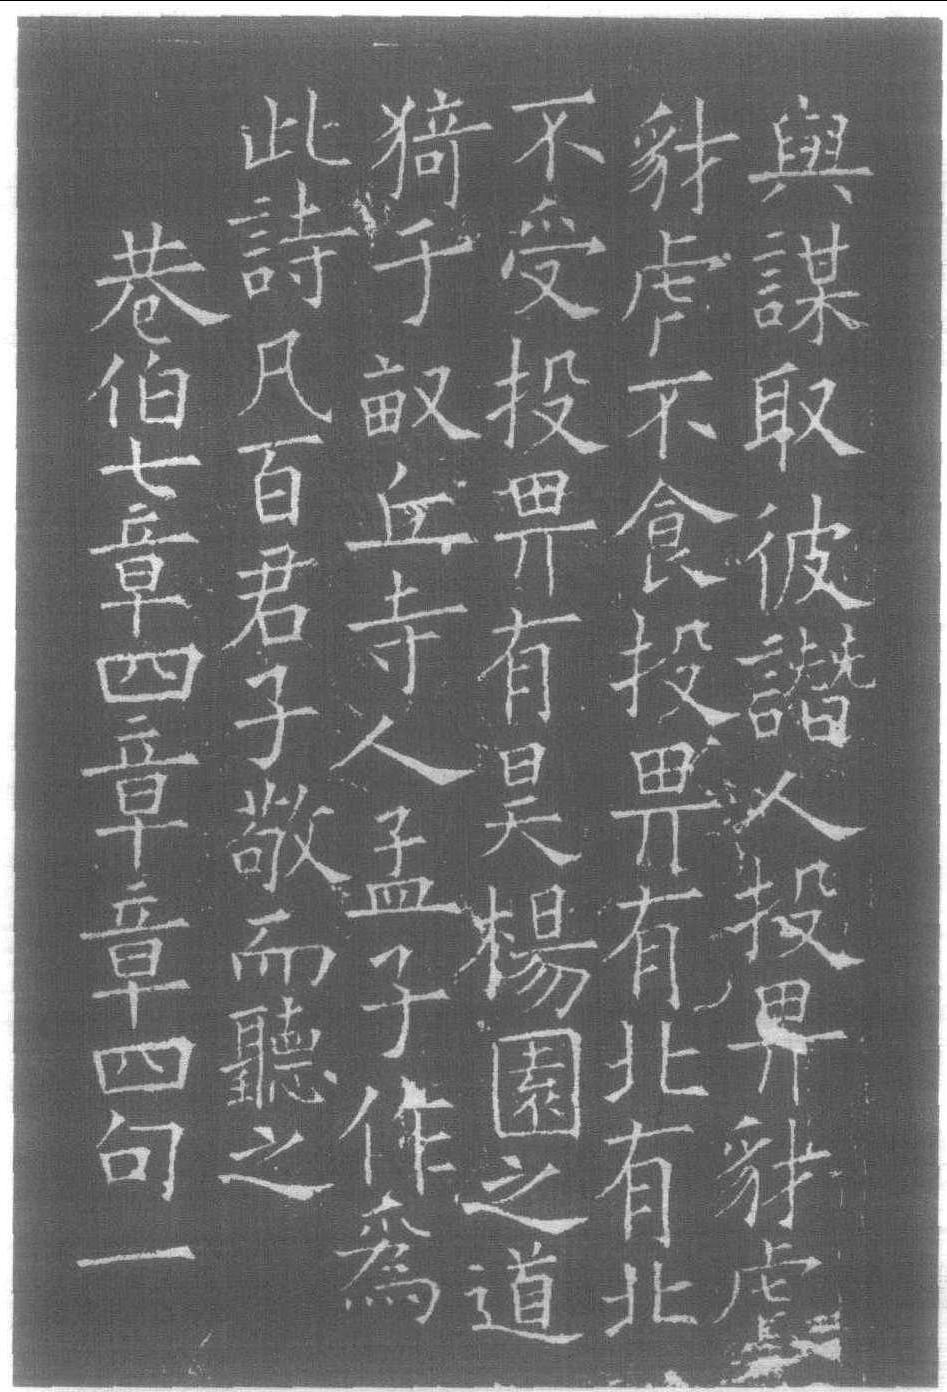 與謀取彼譖人投畀豺虎
豺虎不食投畀有北有北
不受投畀有昊楊園之道
猗于畝丘寺人孟子作爲
此詩凡百君子敬而聽之
巷伯七章四章章四句一